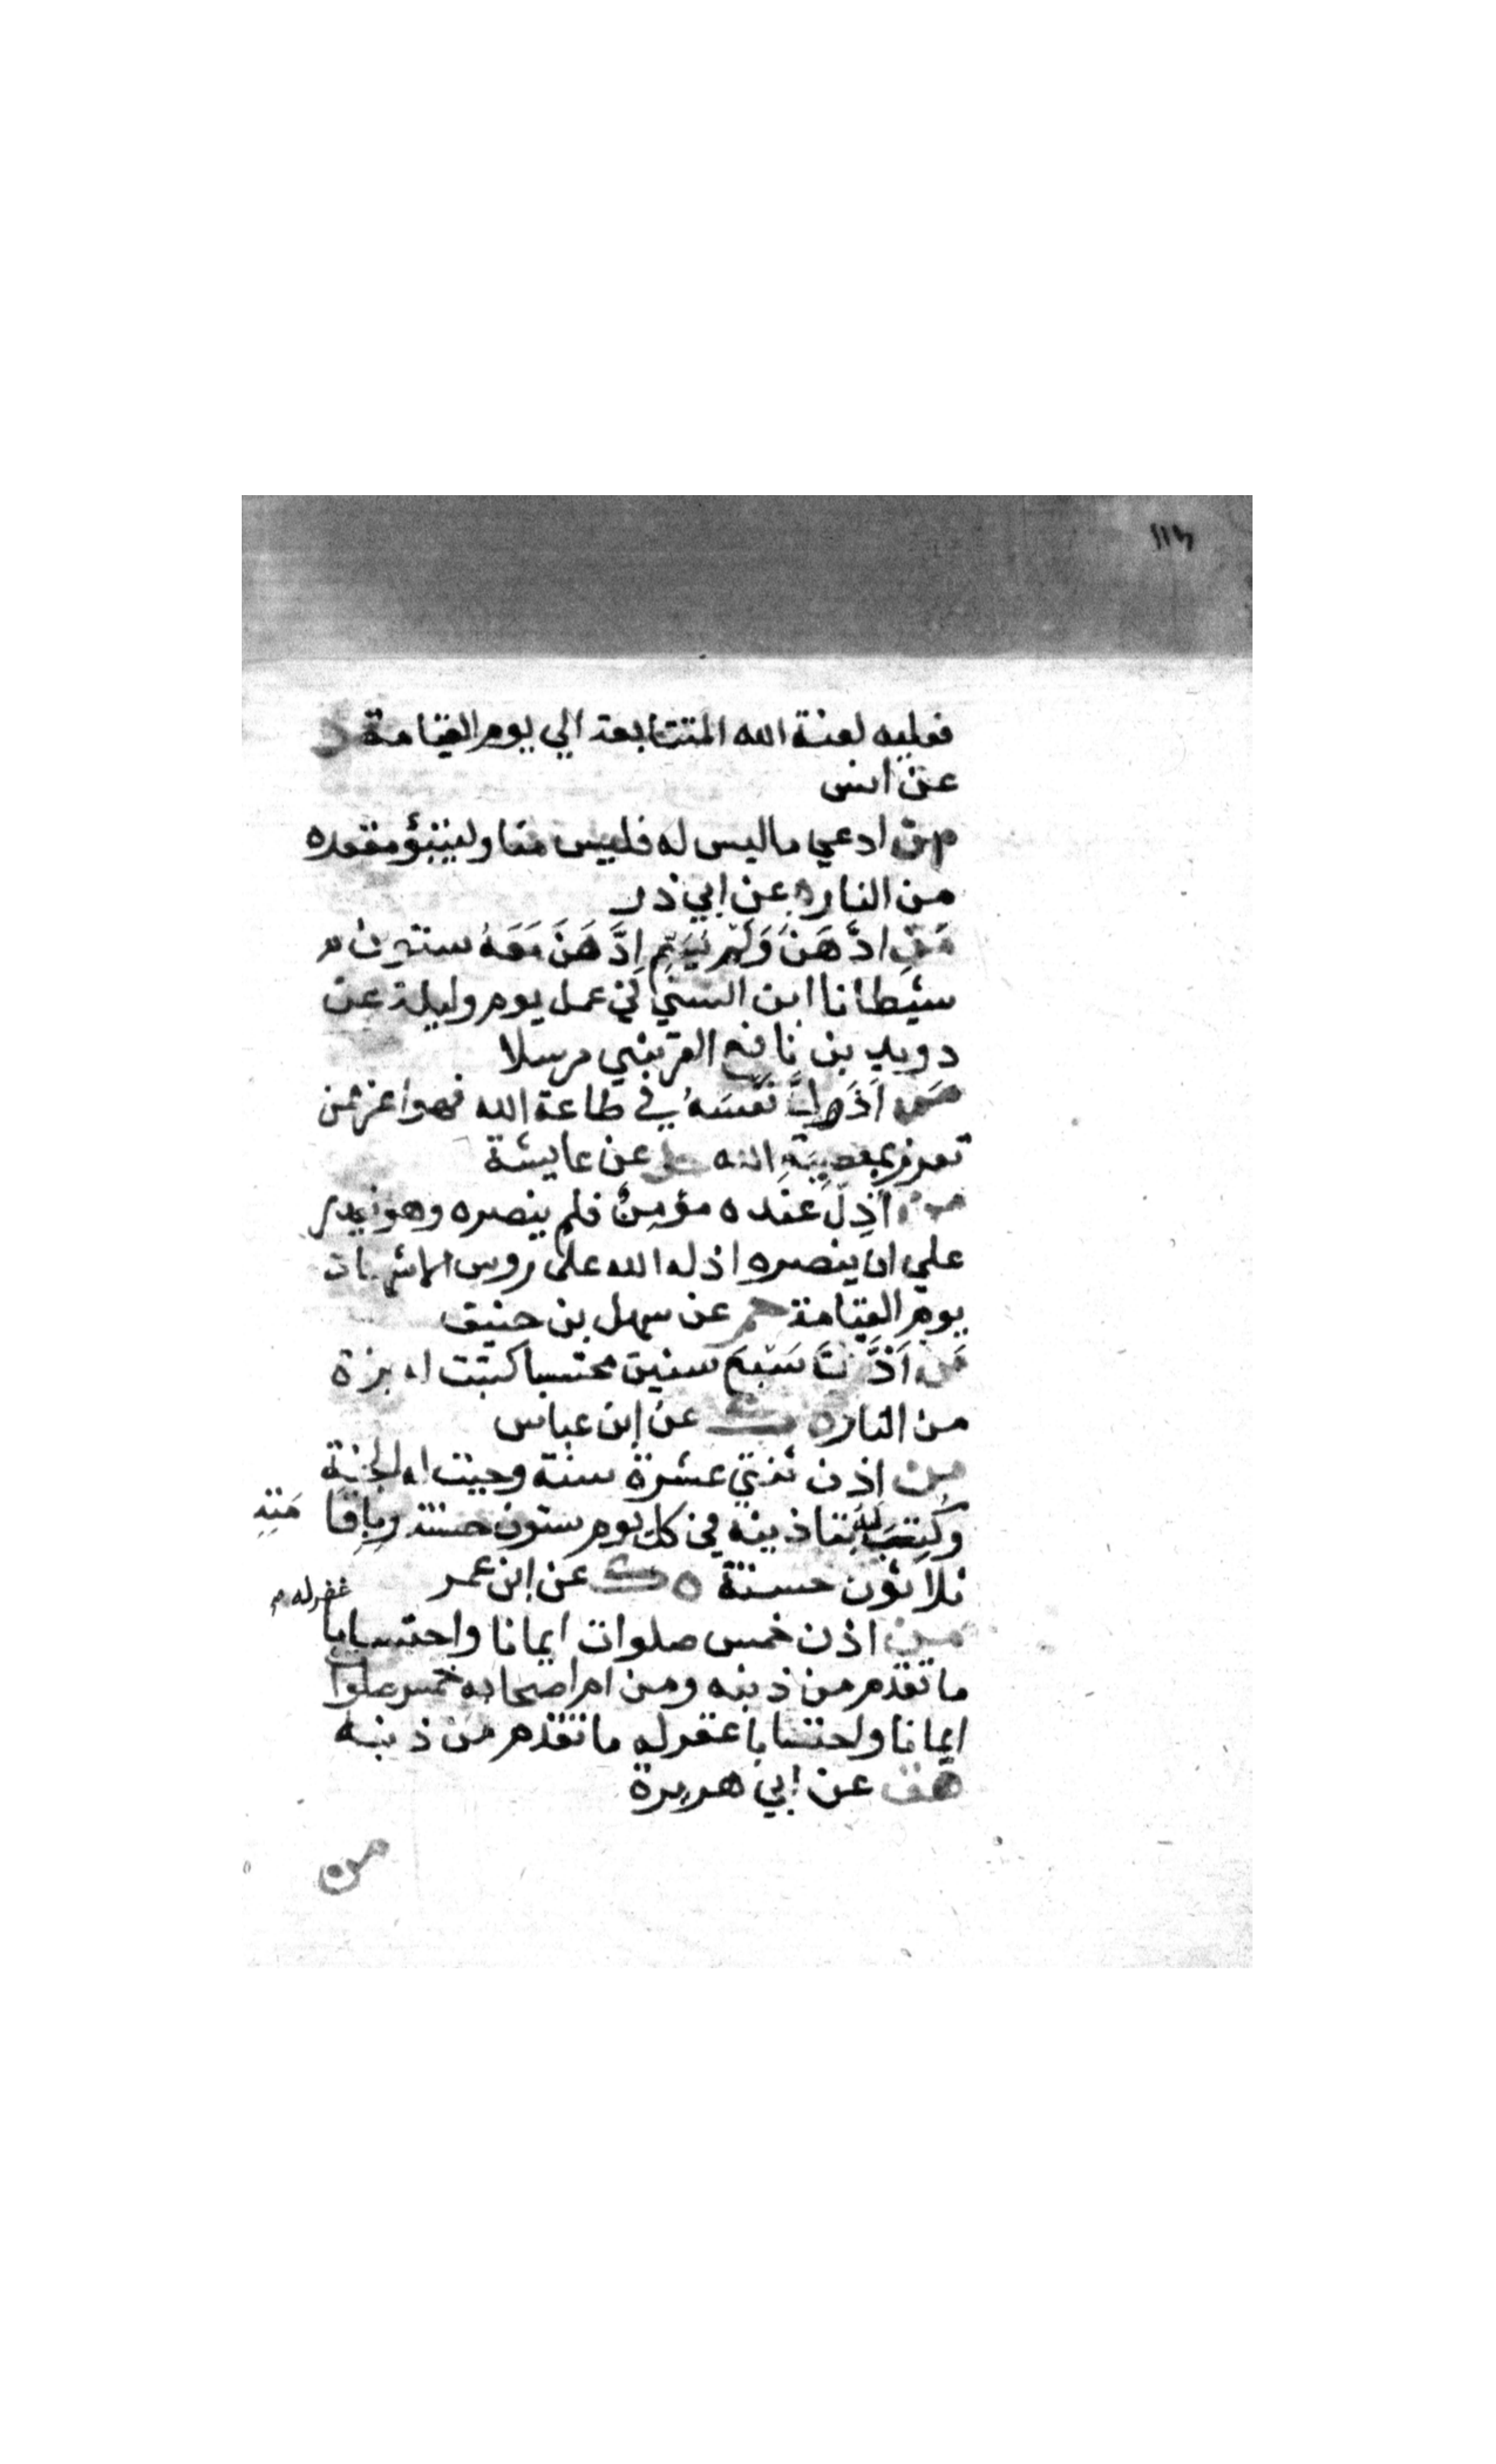 فعليه لعنة الله المتتابعة الي يوم القيامة د
عن انس
من ادعي ما ليس له فليس منا وليتبؤ مقعده
من النار ه عن ابي ذر
مَنِ ادَّهَنَ وَلَمْ يُسَمِّ ادَّهَنَ مَعَهُ ستون
شيطانا ابن السني في عمل يوم وليلة عن
دويد بن نافع القرشي مرسلا
من اَذَلَّ نَفْسَهُ في طاعة الله فهو اعز ممن
تعزز بمعصية الله حل عن عايشة
من اُذِلَّ عنده مؤمنٌ فلم ينصره وهو يقدر
علي ان ينصره اذله الله على روس الاشهاد
يوم القيامة حم عن سهل بن حنيف
مَن اَذَّنَ سَبْعَ سنين محتسبا كتبت له براة
من النار ه ت عن ابن عباس
من اذن ثنتي عشرة سنة وجبت له الجنة
وَكُتِبَ لَهُ بتاذينه في كل يوم ستون حسنة وبِاِقَا
مَتِهِ
ثلاثون حسنة ه ك عن ابن عمر
غفر له
من اذن خمس صلوات ايمانا واحتسابا
ما تقدم من ذنبه ومن ام اصحابه خمس صلوا
ايمانا واحتسابا غفر له ما تقدم من ذنبه
هق عن ابي هريرة
من